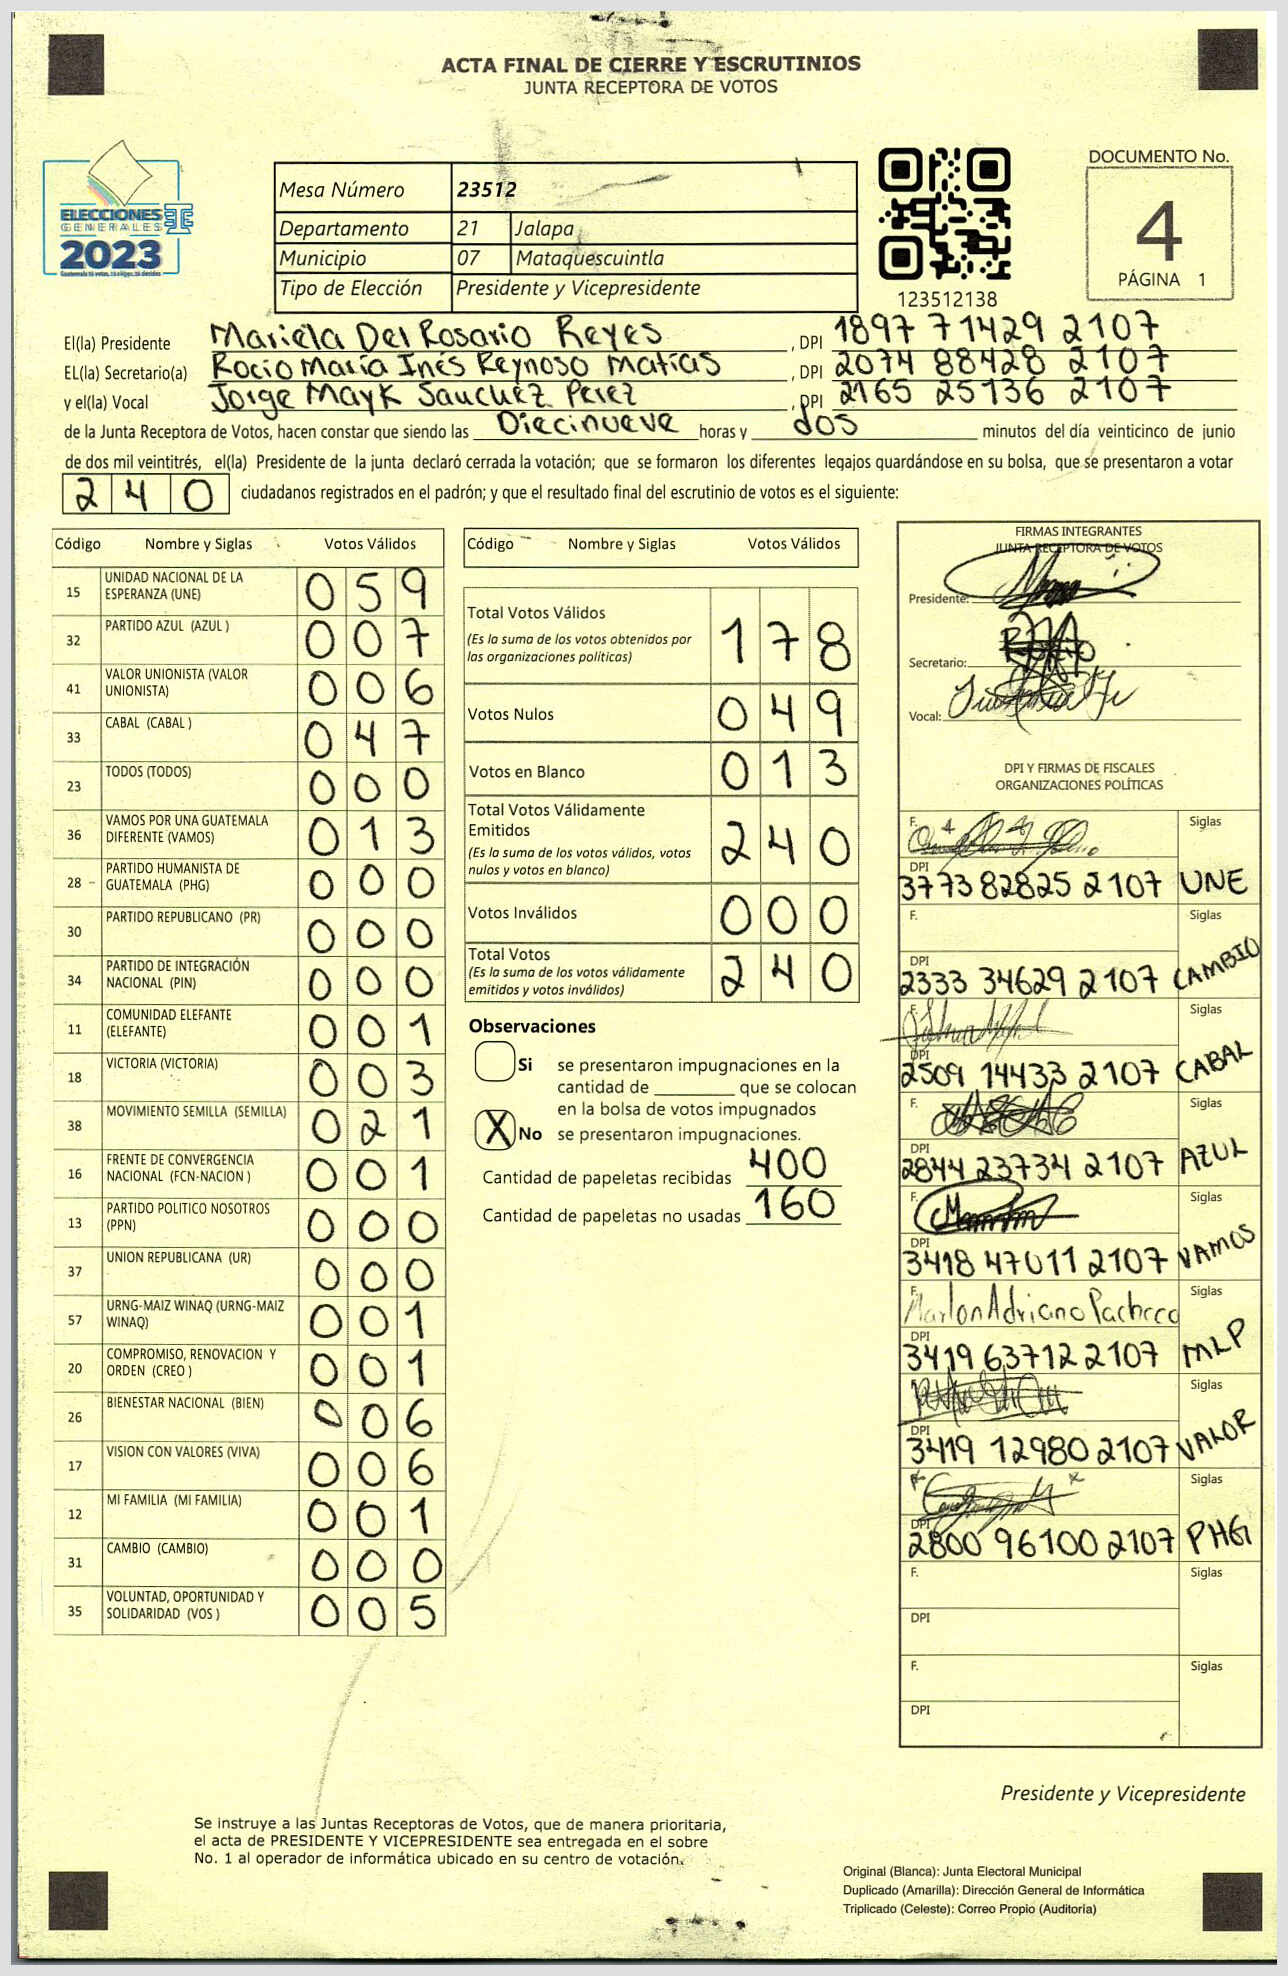 ACTA FINAL DE CIERRE Y ESCRUTINIOS
JUNTA RECEPTORA DE VOTOS
ELECCIONES
GENERALES
2023
Mesa Número 23512
Departamento 21 Jalapa
Municipio 07 Mataquescuintla
Tipo de Elección Presidente y Vicepresidente
123512138
DOCUMENTO No.
4
PÁGINA 1
El(la) Presidente Mariela Del Rosario Reyes, DPI 1897 71429 2107
EL(la) Secretario(a) Rocio María Inés Reynoso Matías, DPI 2074 88428 2107
y el(la) Vocal Jorge Mayk Sanchez Perez, DPI 2165 25136 2107
de la Junta Receptora de Votos, hacen constar que siendo las Diecinueve horas y dos minutos del día veinticinco de junio
de dos mil veintitrés, el(la) Presidente de la junta declaró cerrada la votación; que se formaron los diferentes legajos guardándose en su bolsa, que se presentaron a votar
240 ciudadanos registrados en el padrón; y que el resultado final del escrutinio de votos es el siguiente:
Código Nombre y Siglas Votos Válidos
15 UNIDAD NACIONAL DE LA ESPERANZA (UNE) 059
32 PARTIDO AZUL (AZUL ) 007
41 VALOR UNIONISTA (VALOR UNIONISTA) 006
33 CABAL (CABAL ) 047
23 TODOS (TODOS) 000
36 VAMOS POR UNA GUATEMALA DIFERENTE (VAMOS) 013
28 PARTIDO HUMANISTA DE GUATEMALA (PHG) 000
30 PARTIDO REPUBLICANO (PR) 000
34 PARTIDO DE INTEGRACIÓN NACIONAL (PIN) 000
11 COMUNIDAD ELEFANTE (ELEFANTE) 001
18 VICTORIA (VICTORIA) 003
38 MOVIMIENTO SEMILLA (SEMILLA) 021
16 FRENTE DE CONVERGENCIA NACIONAL (FCN-NACION ) 001
13 PARTIDO POLITICO NOSOTROS (PPN) 000
37 UNION REPUBLICANA (UR) 000
57 URNG-MAIZ WINAQ (URNG-MAIZ WINAQ) 001
20 COMPROMISO, RENOVACION Y ORDEN (CREO ) 001
26 BIENESTAR NACIONAL (BIEN) 006
17 VISION CON VALORES (VIVA) 006
12 MI FAMILIA (MI FAMILIA) 001
31 CAMBIO (CAMBIO) 000
35 VOLUNTAD, OPORTUNIDAD Y SOLIDARIDAD (VOS ) 005
Código Nombre y Siglas Votos Válidos
Total Votos Válidos 178
(Es la suma de los votos obtenidos por
las organizaciones políticas)
Votos Nulos 049
Votos en Blanco 013
Total Votos Válidamente
Emitidos 240
(Es la suma de los votos válidos, votos
nulos y votos en blanco)
Votos Inválidos 000
Total Votos 240
(Es la suma de los votos válidamente
emitidos y votos inválidos)
Observaciones
Si se presentaron impugnaciones en la
cantidad de ________ que se colocan
en la bolsa de votos impugnados
X No se presentaron impugnaciones.
Cantidad de papeletas recibidas 400
Cantidad de papeletas no usadas 160
FIRMAS INTEGRANTES
JUNTA RECEPTORA DE VOTOS
Presidente:
Secretario:
Vocal:
DPI Y FIRMAS DE FISCALES
ORGANIZACIONES POLÍTICAS
F. Siglas
DPI
3773 82825 2107 UNE
F. Siglas
DPI
2333 34629 2107 CAMBIO
F. Siglas
DPI
2509 14433 2107 CABAL
F. Siglas
DPI
2844 23734 2107 AZUL
F. Siglas
DPI
3418 47011 2107 VAMOS
F. Marlon Adriano Pacheco Siglas
DPI
3419 63712 2107 MLP
Siglas
DPI
3419 12980 2107 VALOR
Siglas
DPI
2800 96100 2107 PHG
F. Siglas
DPI
F. Siglas
DPI
Presidente y Vicepresidente
Se instruye a las Juntas Receptoras de Votos, que de manera prioritaria,
el acta de PRESIDENTE Y VICEPRESIDENTE sea entregada en el sobre
No. 1 al operador de informática ubicado en su centro de votación.
Original (Blanca): Junta Electoral Municipal
Duplicado (Amarilla): Dirección General de Informática
Triplicado (Celeste): Correo Propio (Auditoría)